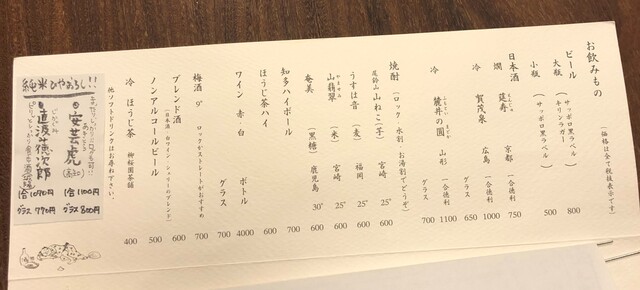 お飲みもの
（価格は全て税抜表示です）
ビール
大瓶（サッポロ黒ラベル）（キリンラガー） 800
小瓶（サッポロ黒ラベル） 500
日本酒
燗 延寿 京都 一合徳利 750
冷 賀茂泉 広島 一合徳利 1000
グラス 650
冷 麓井の圓 山形 一合徳利 1100
グラス 700
焼酎（ロック、水割、お湯割でどうぞ）
尾鈴山 山ねこ（芋） 宮崎 25° 600
うすは音（麦） 福岡 25° 600
山翡翠（米） 宮崎 25° 600
奄美（黒糖） 鹿児島 30° 600
知多ハイボール 700
ほうじ茶ハイ 600
ワイン 赤・白 ボトル 4000
グラス 700
梅酒 ロックかストレートがおすすめ 700
ブレンド酒 600
ノンアルコールビール 500
冷 ほうじ茶 柳桜園茶舗 400
他ソフトドリンクはお尋ね下さい。
純米ひやおろし!!
安芸虎
1合 1100円
グラス 800円
直汲 徳次郎
1合 1070円
グラス 770円